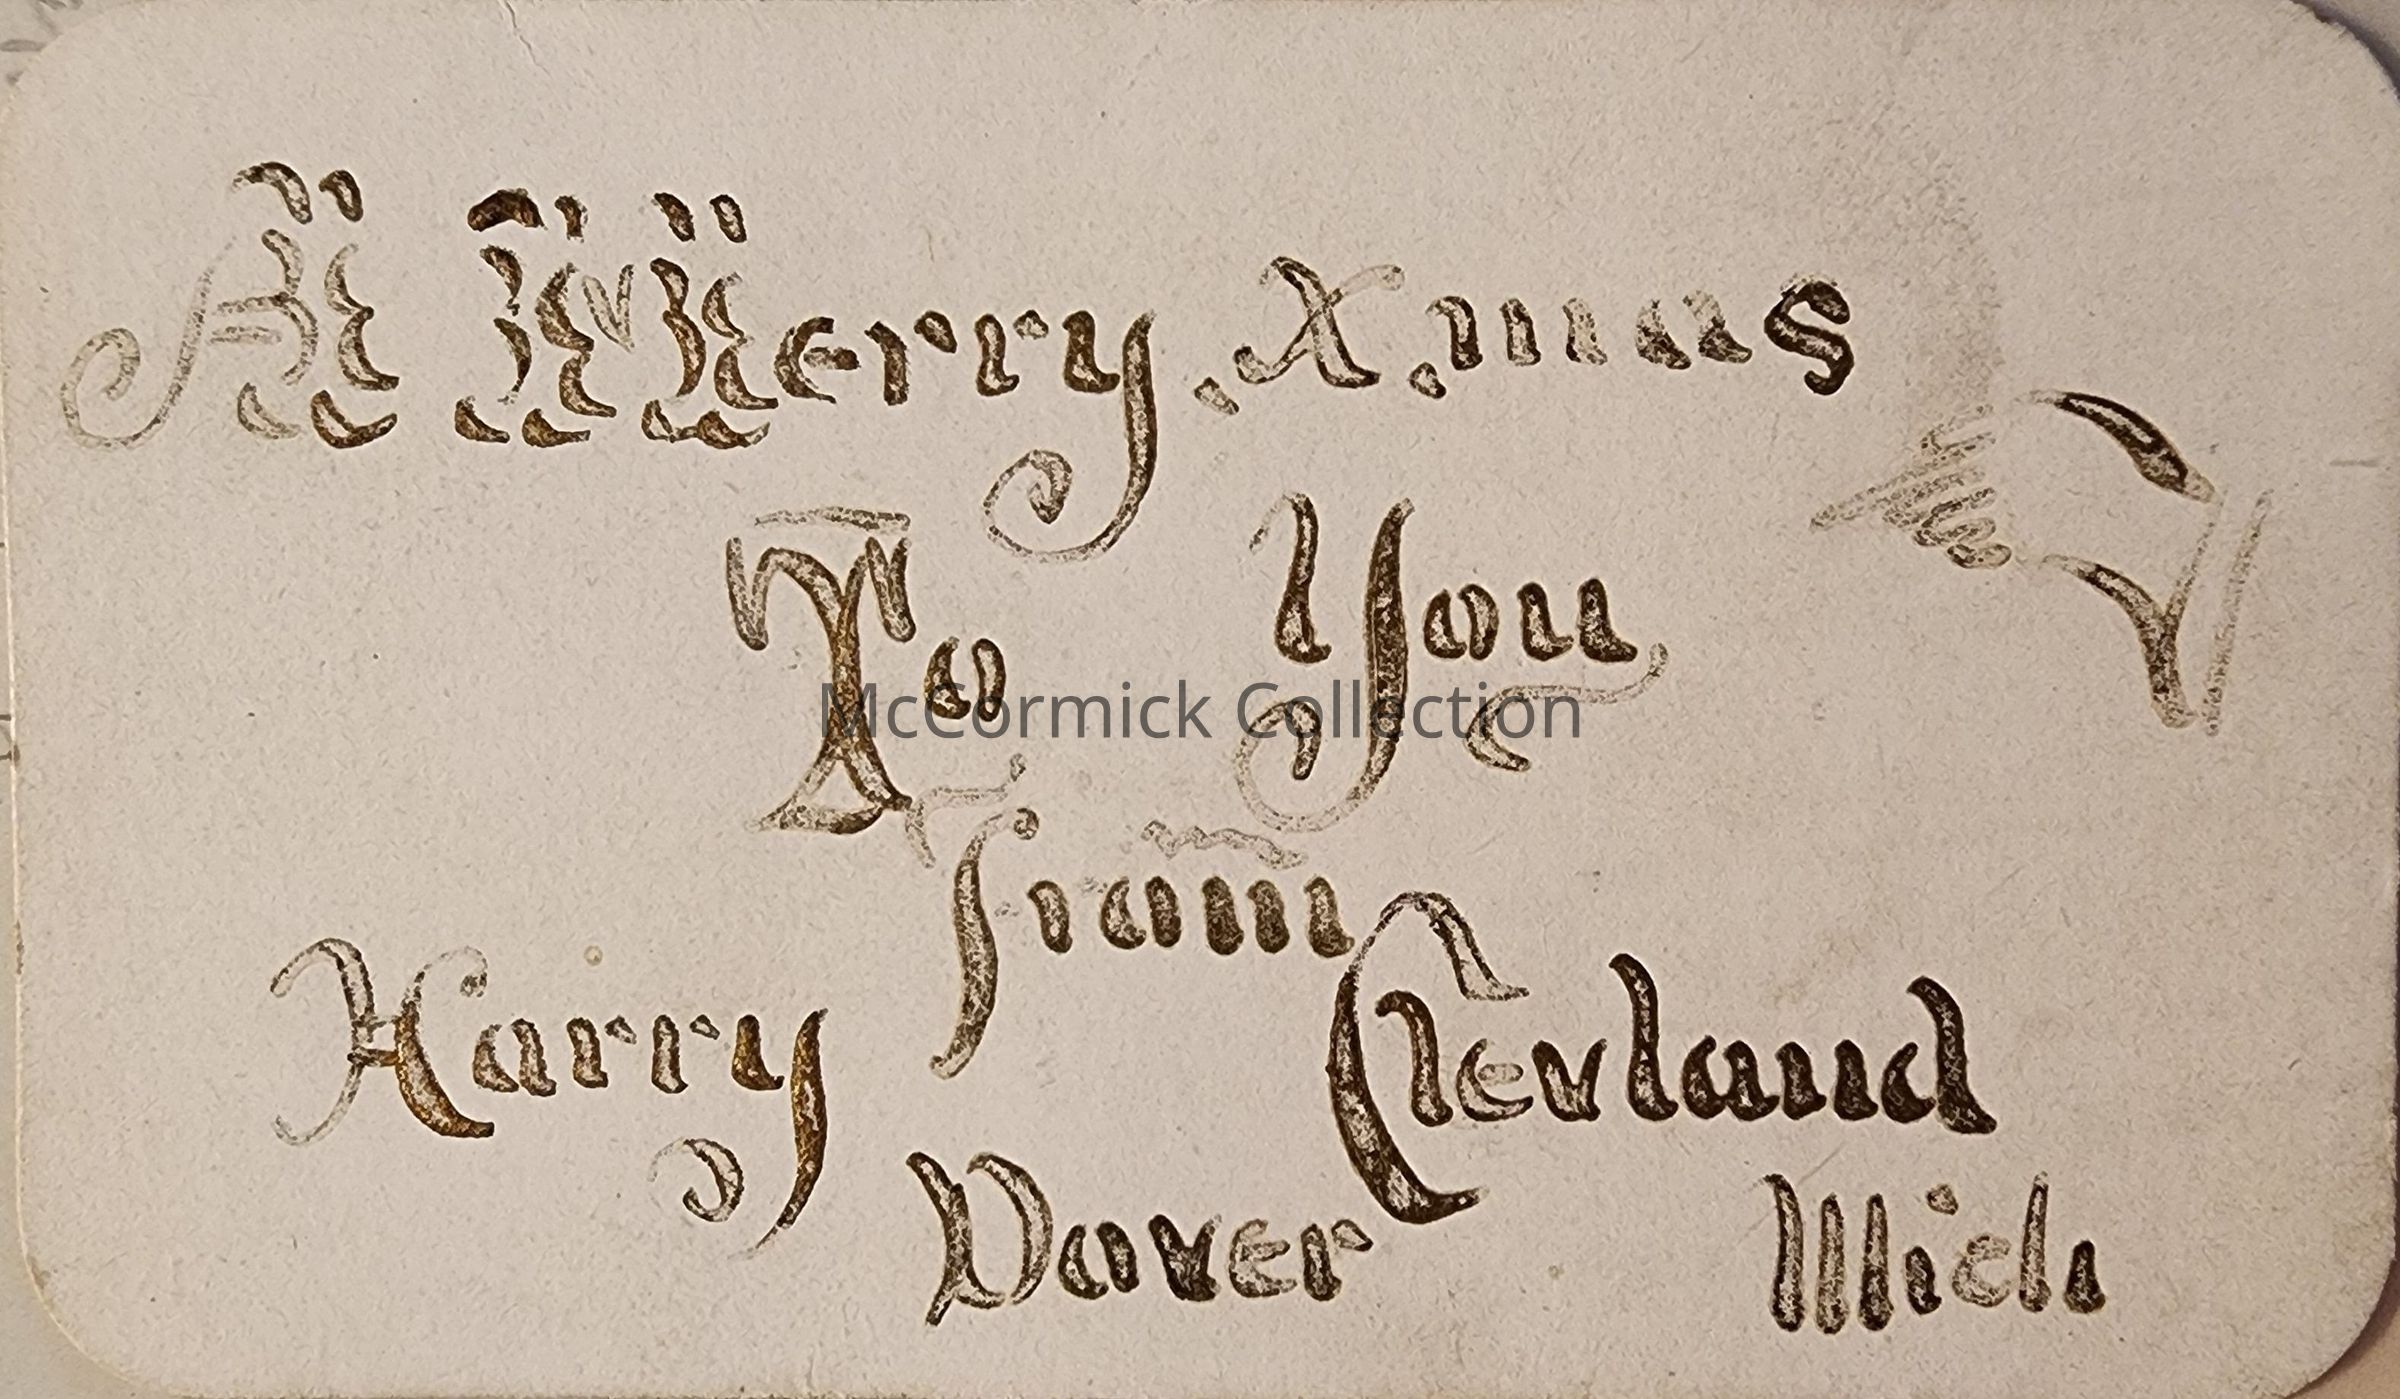 A Merry Xmas
To You
McCormick Collection
from
Harry Clevland
Dover Mich